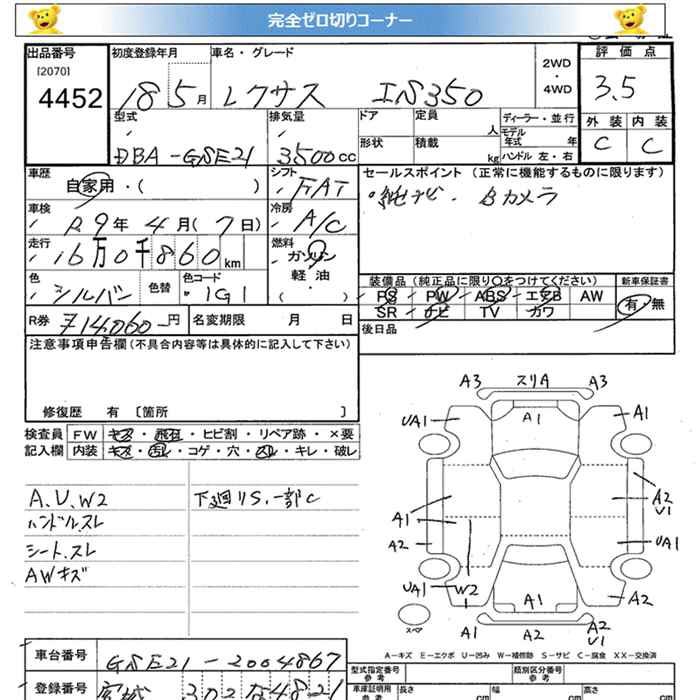 完全ゼロ切りコーナー
出品番号 初度登録年月 車名・グレード 2WD・4WD 評価点
[2070]
4452 18 5月 レクサス IS350 3.5
型式 排気量 ドア 定員 人 ディーラー・並行 外装 内装
DBA-GSE21 3500cc 形状 積載 kg モデル年式 年 ハンドル 左・右 C C
車歴 自家用・( ) シフト FAT セールスポイント (正常に機能するものに限ります)
・純ナビ. Bカメラ
車検 R9年4月(7日) 冷房 A/C
走行 16万0千860km 燃料 ガソリン 軽・油 ( )
色 シルバー 色替 色コード 1G1
装備品 (純正品に限り○をつけてください) 新車保証書
PS PW ABS エアB AW 有・無
SR ナビ TV カワ
R券 ¥14060円 名変期限 月 日 後日品
注意事項申告欄(不具合内容等は具体的に記入して下さい)
修復歴 有 〔箇所 〕
検査員 FW キズ・飛石・ヒビ割・リペア跡・×要
記入欄 内装 キズ・汚レ・コゲ・穴・スレ・キレ・破レ
A、U、W2 下廻りS.一部C
ハンドル.スレ
シート.スレ
AWキズ
A3 スリA A3
UA1 A1 A1
A1 A2 U1
A2 UA1
UA1 W2 A2
A1 A1
スペア A2 A2 U1
A-キズ E-エクボ U-凹み W-補修跡 S-サビ C-腐食 XX-交換済
車台番号 GSE21-2004867
登録番号 宮城 302 な4821
型式指定番号 参考 類別区分番号 参考
車庫証明用 参考 長さ cm 幅 cm 高さ cm